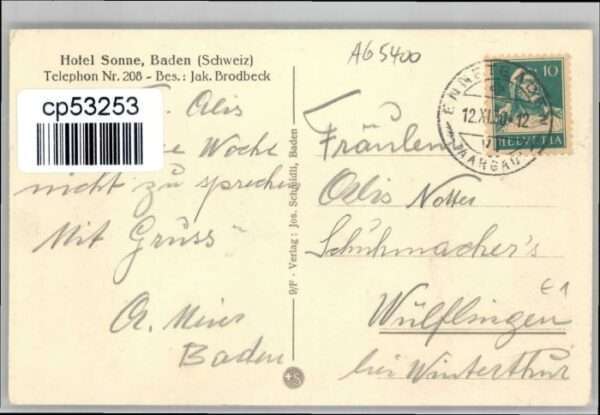 Hotel Sonne, Baden (Schweiz)
Telephon Nr. 208 - Bes.: Jak. Brodbeck
AG 5400
cp53253
Alis
Woche
nicht zu sprechen
Mit Gruss
A. Meier
Baden
9/F - Verlag: Jos. Schmidli, Baden
10
HELVETIA
12.XI.30-12
(AARGAU)
Fräulein
Alis Notter
Schuhmacher's
Wülflingen
bei Winterthur
€1